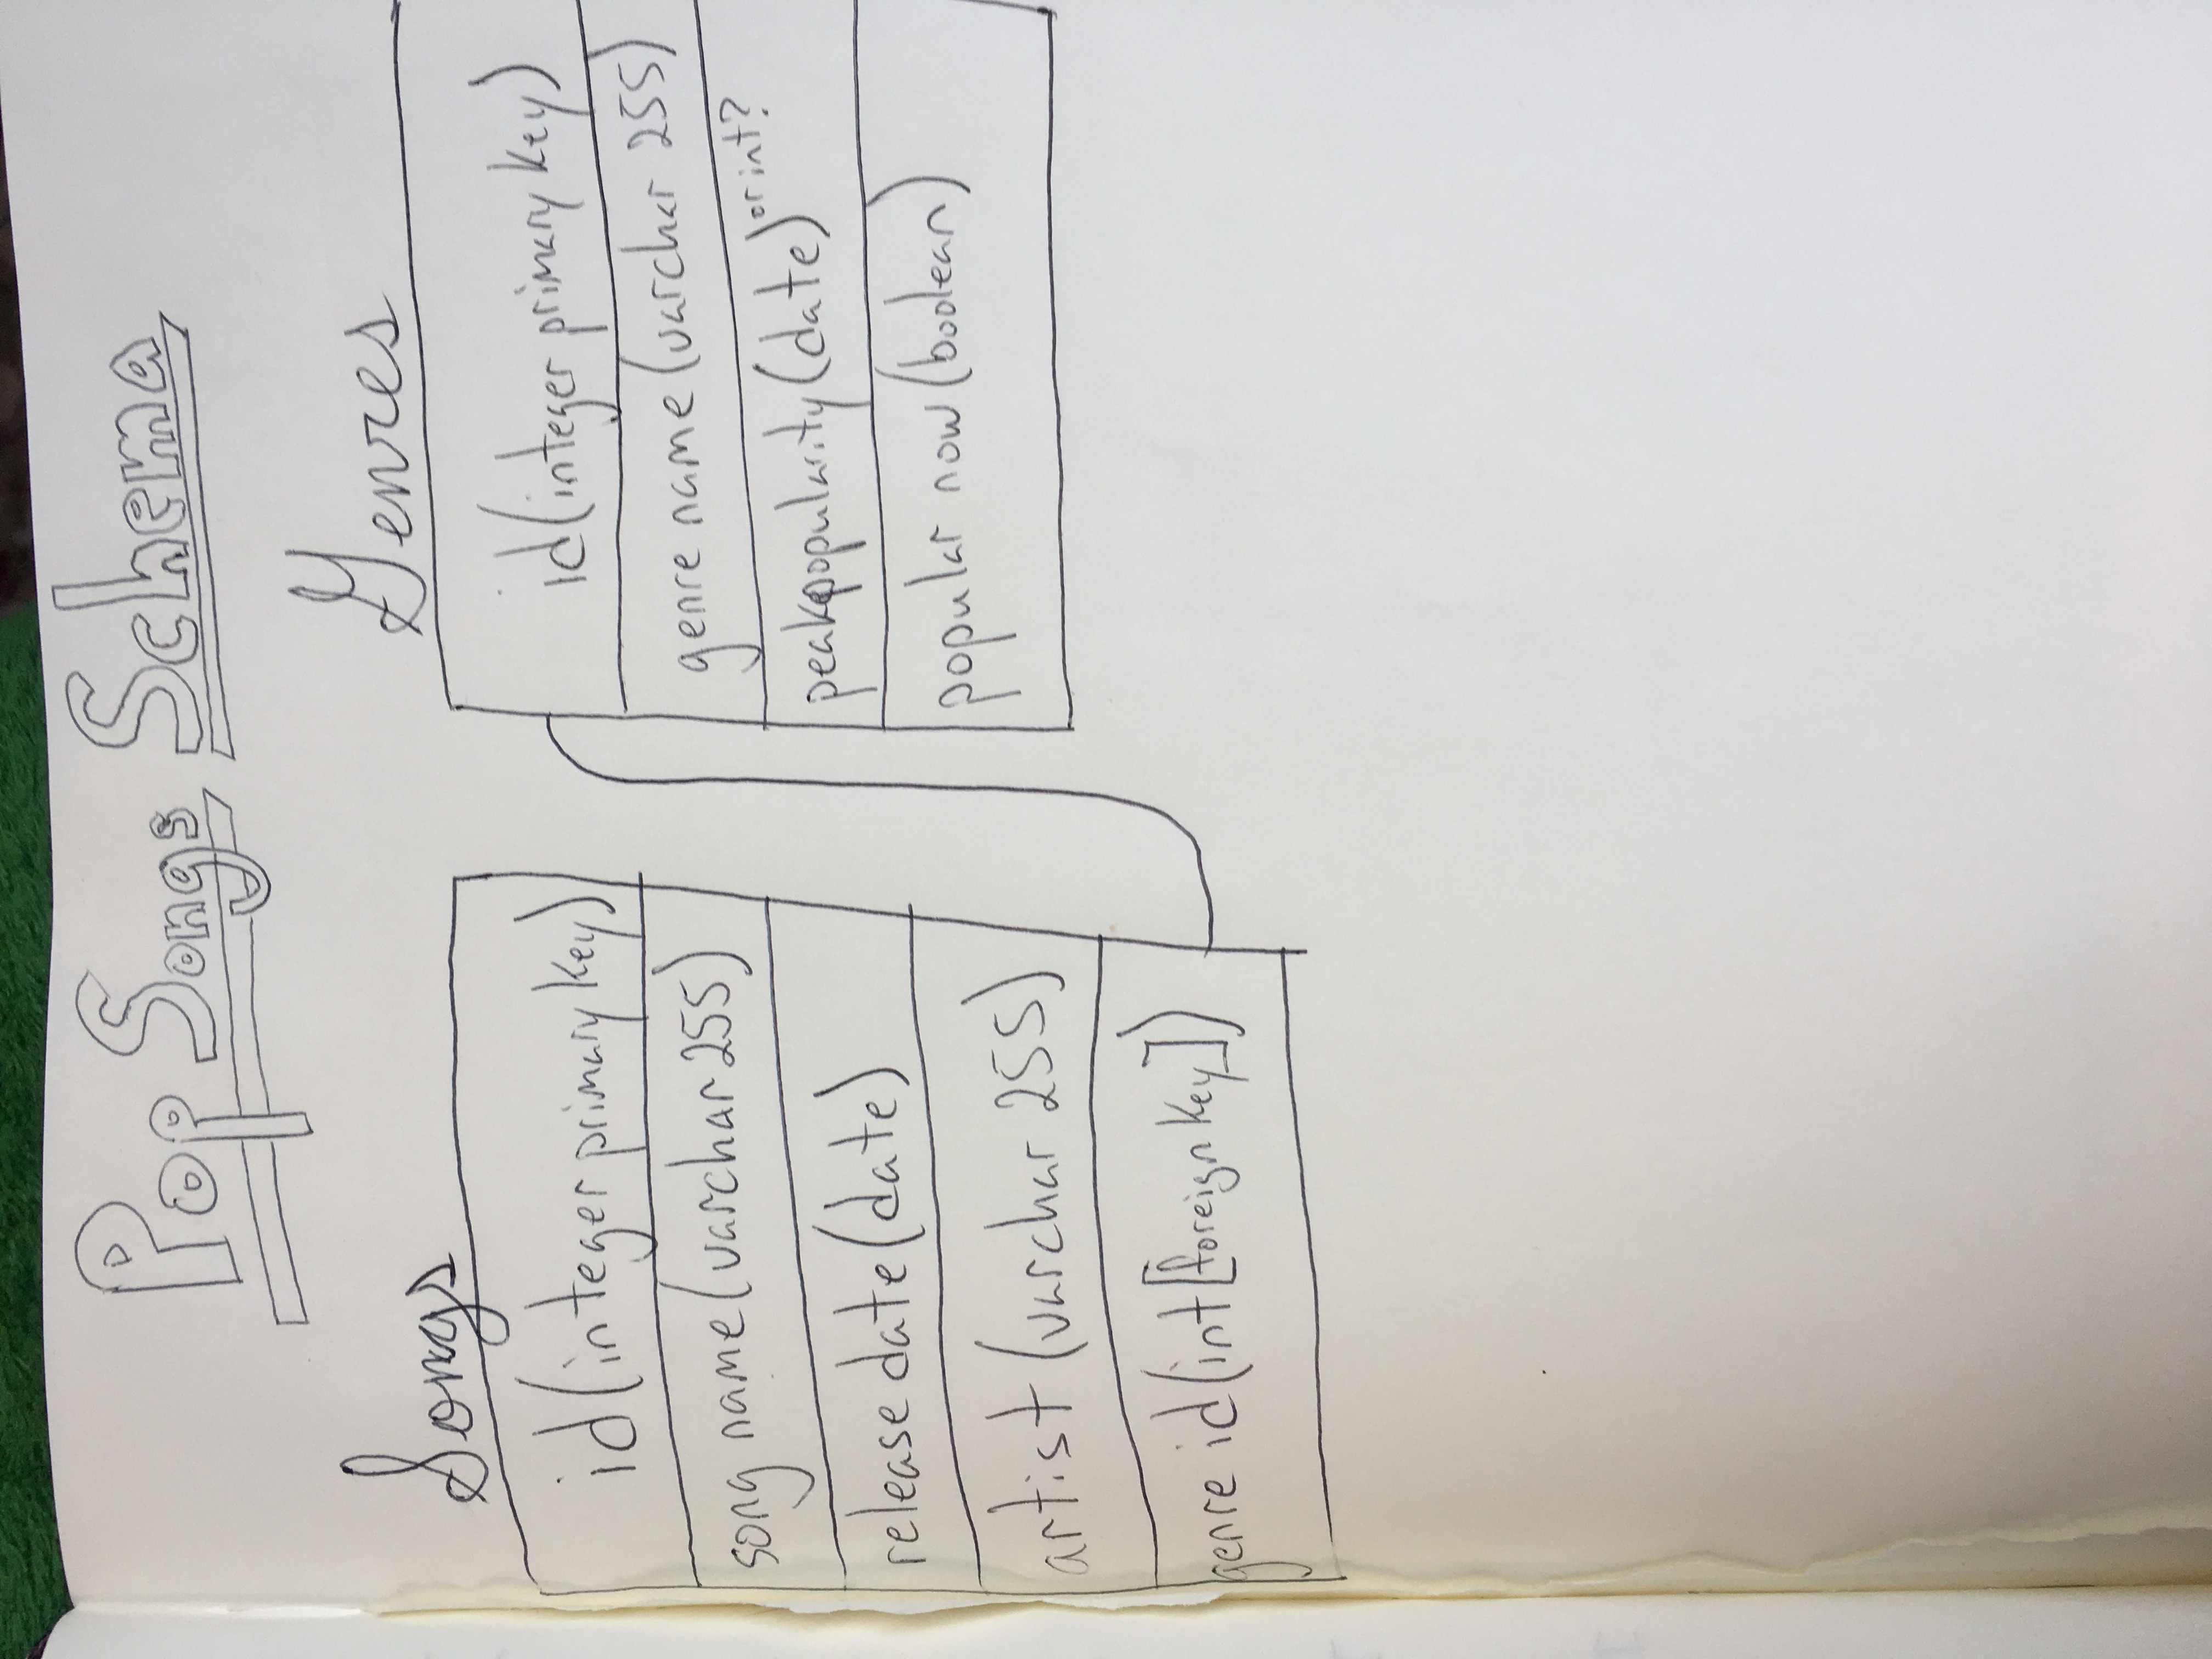 Pop Songs Schema
Songs
id (integer primary key)
song name (varchar 255)
release date (date)
artist (varchar 255)
genre id (int [foreign key])
Genres
id (integer primary key)
genre name (varchar 255)
peak popularity (date) or int?
popular now (boolean)